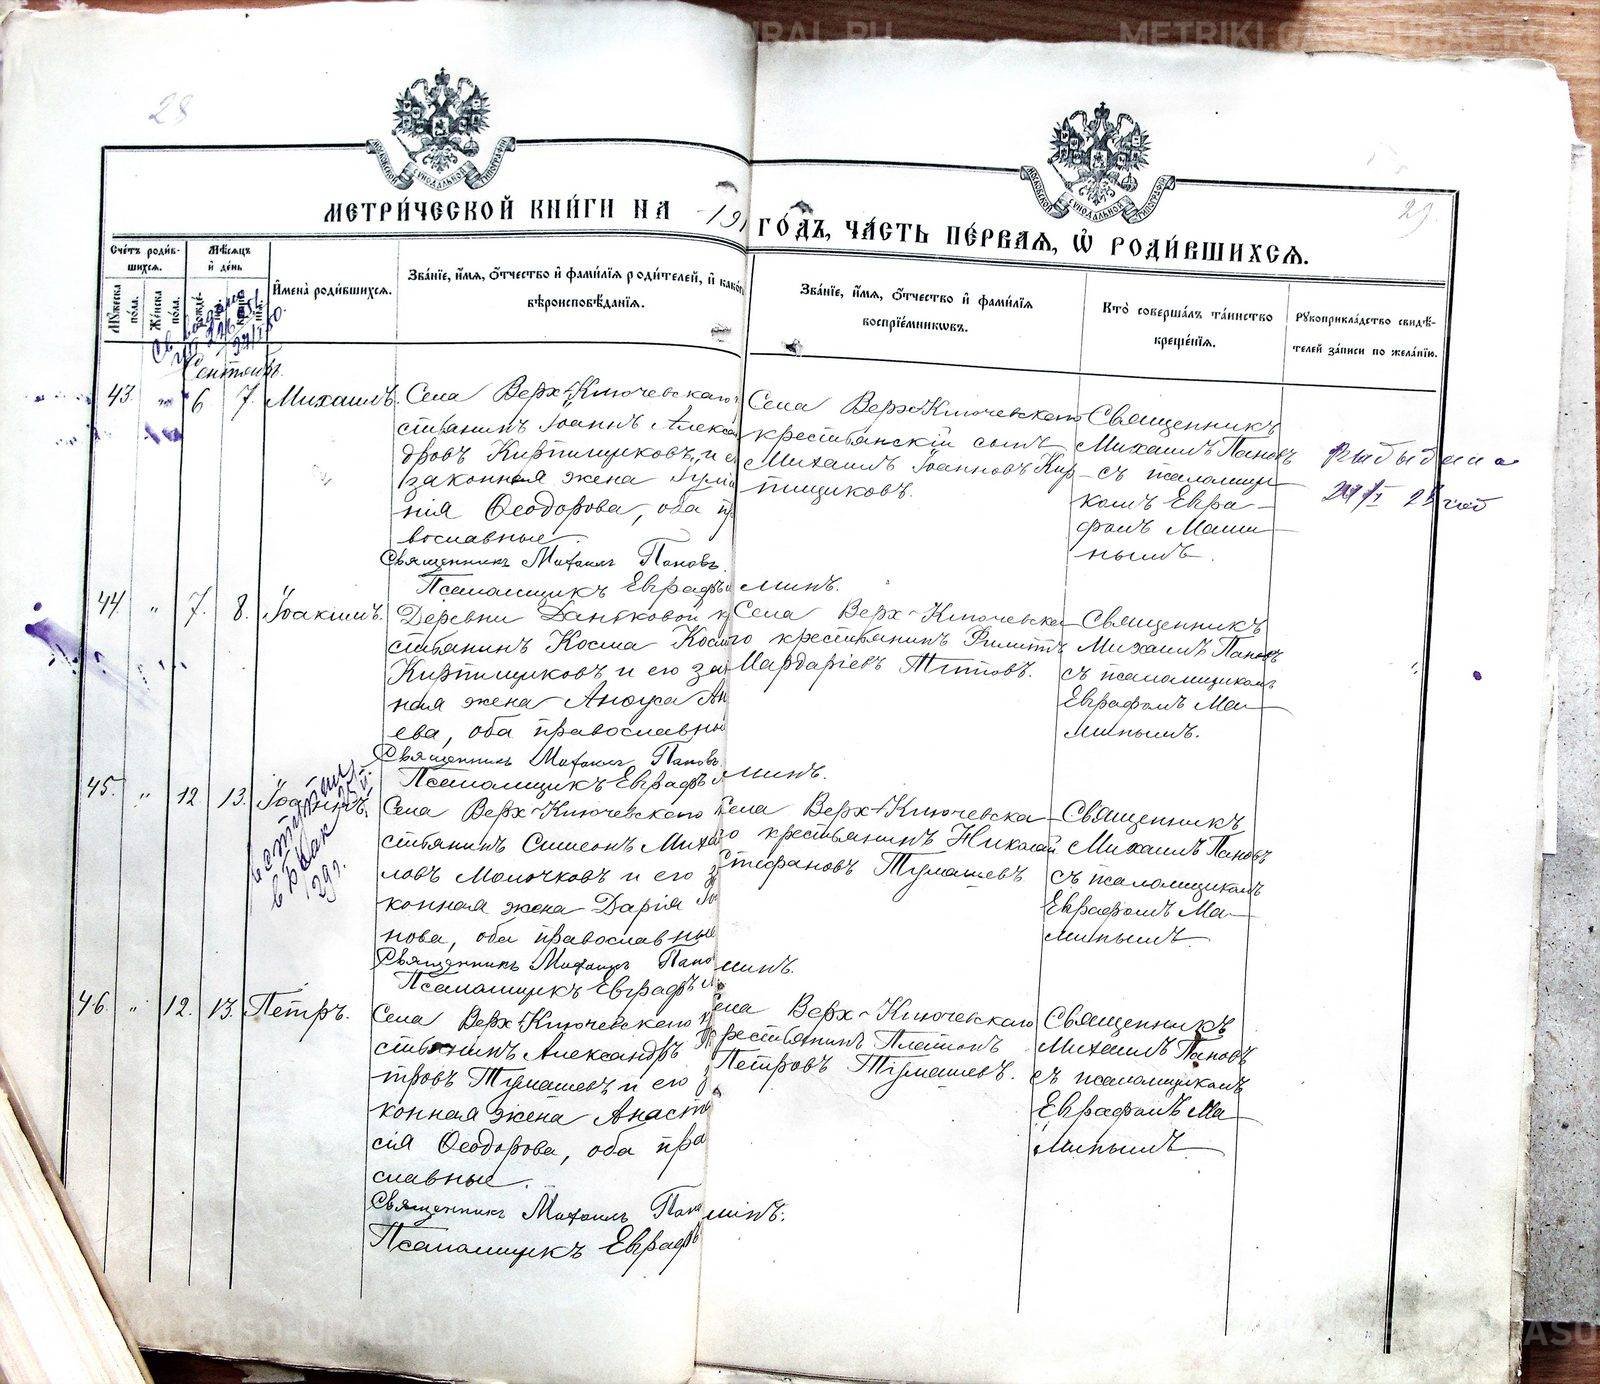 METRIKI.GASO-URAL.RU
28
29.
МОСКОВСКОЙ СѴНОДАЛЬНОЙ ТИПОГРАФІИ
МОСКОВСКОЙ СѴНОДАЛЬНОЙ ТИПОГРАФІИ
МЕТРИ́ЧЕСКОЙ КНИ́ГИ НА 191
ГО́ДЪ, ЧА́СТЬ ПЕ́РВАЯ, Ѡ҆ РОДИ́ВШИХСЯ.
Сче́тъ роди́в-
шихся.
Мꙋ́жеска по́ла.
Же́нска по́ла.
Мѣ́сяцъ
и҆ де́нь
И҆мена̀ роди́вшихся.
Зва́нїе, и҆́мя, ѻ҆́тчество и҆ фами́лїя роди́телей, и҆ како́г
вѣроисповѣ́данїя.
Зва́нїе, и҆́мя, ѻ҆́тчество и҆ фами́лїя
воспрїе́мниковъ.
Кто̀ соверша́лъ та́инство
креще́нїя.
Рꙋкоприкла́дство свидѣ́-
телей за́писи по жела́нїю.
Сентябь.
43. " 6 7. Михаилъ.
Села Верх-Ключевскаго
стьянинъ Іоаннъ Алекса
дровъ Кирпищиковъ и е
законная жена
нія Ѳеодорова, оба п
вославные.
Священникъ Михаилъ Пановъ.
Псаломщикъ Евграфъ
минъ.
Села Верх-Ключевскаго
крестьянскій сынъ
Михаилъ Іоанновъ Кир-
пищиковъ.
Священникъ
Михаилъ Пановъ
съ псаломщи-
комъ Евгра-
фомъ Мами-
нымъ.
44 " 7. 8. Іоакимъ.
Деревни Даньковой к
стьянинъ Косма Косм
Кирпищиковъ и его за
ная жена Анфуса Ан
ева, оба православны
Священникъ Михаилъ Пановъ.
Псаломщикъ Евграфъ
минъ.
Села Верх-Ключевска-
го крестьянинъ Филиппъ
Мардаріевъ Титовъ.
Священникъ
Михаилъ Пановъ
съ псаломщикомъ
Евграфомъ Ма-
минымъ.
45. " 12 13. Іоаннъ.
Села Верх-Ключевскаго
стьянинъ Симеонъ Миха
ловъ Молочковъ и его з
конная жена Дарія Іо
нова, оба православные
Священникъ Михаилъ Пано
Псаломщикъ Евграфъ
минъ.
Села Верх-Ключевска-
го крестьянинъ Николай
Стефановъ Тумашевъ
Священникъ
Михаилъ Пановъ
съ псаломщикомъ
Евграфомъ Ма-
минымъ
46. " 12. 13. Петръ.
Села Верх-Ключевскаго к
стьянинъ Александръ П
тровъ Тумашевъ и его з
конная жена Анаста
сія Ѳеодорова, оба пра
славные.
Священникъ Михаилъ Пано
Псаломщикъ Евграфъ
минъ.
Села Верх-Ключевскаго
крестьянинъ Платонъ
Петровъ Тумашевъ.
Священникъ
Михаилъ Пановъ
съ псаломщикомъ
Евграфомъ Ма-
минымъ